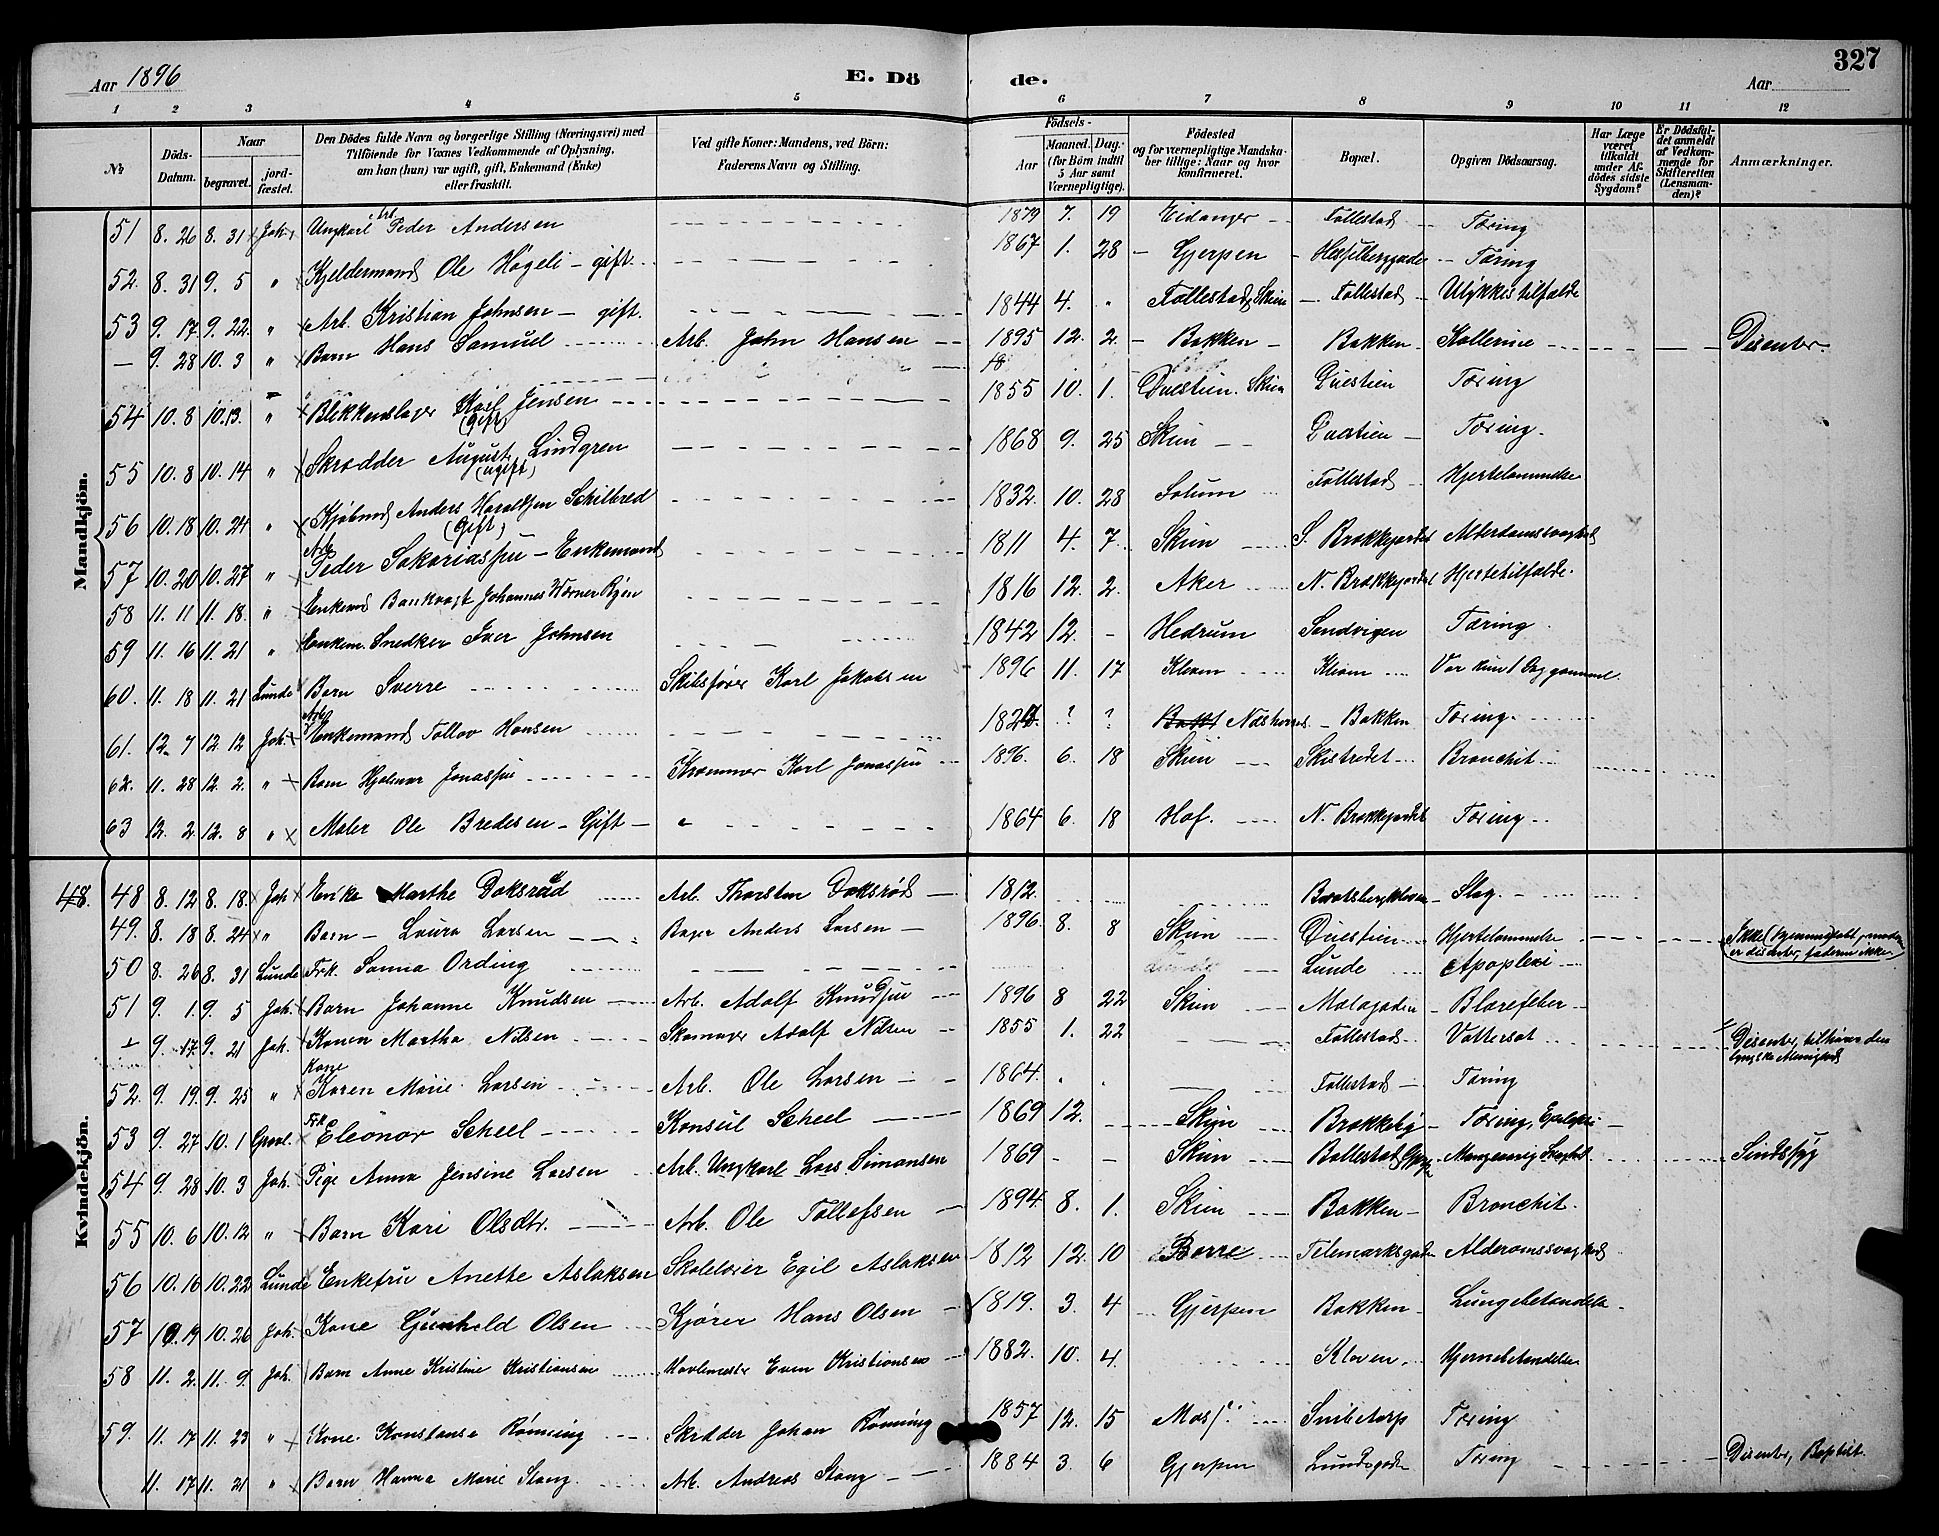 327
Aar 1896 E. Dö de. Aar
1 2 3 4 5 6 7 8 9 10 11 12
№ Döds-Datum. Naar begravet. jordfæstet. Den Dödes fulde Navn og borgerlige Stilling (Næringsvei) med Tilföiende for Voxnes Vedkommende af Oplysning, om han (hun) var ugift, gift, Enkemand (Enke) eller fraskilt. Ved gifte Koner: Mandens, ved Börn: Faderens Navn og Stilling. Födsels- Aar Maaned. Dag. (for Börn indtil 5 Aar samt Værnepligtige). Födested og for værnepligtige Mandskaber tillige: Naar og hvor konfirmeret. Bopæl. Opgiven Dödsaarsag. Har Læge været tilkaldt under Afdödes sidste Sygdom? Er Dödsfaldet anmeldt af Vedkommende for Skifteretten (Lensmanden)? Anmærkninger.
Mandkjön.
51 8. 26 8. 31 Joh. Ungkarl Arb. Peder Andersen 1879 7. 19 Eidanger Follestad Tæring
52. 8. 31 9. 5 " Kjeldermand Ole Høgeli - gift 1867 1. 28 Gjerpen Hesselberggaden Tæring
53 9. 17 9. 22. " Arb. Kristian Johnsen - gift. 1844 4. " Follestad, Skien Follestad Ulykkestilfælde
— 9. 28 10. 3 " Barn Hans Samuel Arb. John Hansen 1895 12. 2. Bakken Bakken Kollerine Disenter.
54 10. 8 10. 13. " Blikkenslager Karl Jensen (Gift) 1855 10. 1. Duestien. Skien Duestien Tæring
55 10. 8 10. 14 " Skrædder August Lindgren (ugift) 1868 9. 25 Skien Duestien Tæring.
56 10. 18 10. 24 " Kjøbmd Anders Haraldsen Schilbred (Gift) 1832. 10. 28 Solum Follestad Hjertelammelse
57 10. 20 10. 27 " Arb. Peder Sakariassen - Enkemand 1811 4. 7 Skien S. Brekkejordet Alderdomssvaghed
58 11. 11 11. 18. " Enkemd Bankvagt Johannes Wörner 1816 12. 2. Aker N. Brekkejordet Hjertetilfælde.
59 11. 16 11. 21 " Enkem. Snedker Iver Johnsen 1842 12. - Hedrum Sandvigen Tæring.
60. 11. 18 11. 21 Lunde Barn Sverre Skibsfører Karl Jakobsen 1896 11. 17 Kleven Kleven Var kun 1 Dag gammel.
61. 12. 7 12. 12 Joh. Arb. Enkemand Tollov Hansen ? ? Bakken Tæring.
62. 11. 28 12. 2. " Barn Hjalmar Jonassen Kræmmer Karl Jonassen 1896. 6. 18 Skien Skistredet Bronchit
63 12. 2 12. 8 " Maler Ole Bredesen - Gift 1864 6. 18 Hof. N. Brekkejordet Tæring
Kvindekjön.
48. 48 8. 12 8. 18. Joh. Enke Marthe Doksrød Arb. Thorsten Doksrød 1812. Bratsbergkleven Slag.
49. 8. 18 8. 24 " Barn - Laura Larsen Bager Anders Larsen 1896. 8. 8 Skien Duestien Hjertelammelse Ikke (hjemmedøbt, moder er disenter, faderen ikke
50 8. 26 8. 31 Lunde Frk. Sanna Ording Lunde Apoplexi
51 9. 1. 9. 5 Joh. Barn Johanne Knudsen Arb. Adolf Knudsen 1896 8 22 Skien Molagaden Blærefeber
— 9. 17 9. 21 Joh. Konen Martha Nilsen Skomager Adolf Nilsen 1855 1. 22 Follestad Vattersot Disenter, tilhører den Menighed
52. 9. 19. 9. 25 " Kone Karen Marie Larsen Arb. Ole Larsen 1864. Follestad Tæring
53 9. 27 10. 1 Frk. Eleonor Scheel Konsul Scheel 1869 12. Skien Brekkeby Tæring, Epilepsi
54 9. 28 10. 3 Joh. Pige Anna Jensine Larsen Arb. Ungkarl Lars Simonsen 1869 - - Skien Sindssyg
55 10. 6 10. 12 " Barn Kari Olsdtr. Arb. Ole Tollefsen 1894. 8. 1. Skien Bakken Bronchit.
56 10. 16 10. 22 Lunde Enkefru Anette Aslaksen Skolelærer Egil Aslaksen 1812 12. 10 Borre Telemarksgaden Alderomssvaghed
57 10. 19 10. 26 Joh. Kone Gunhild Olsen Kjører Hans Olsen 1819. 3. 4 Gjerpen Bakken Lungebetændelse
58 11. 2. 11. 9. Joh. Barn Anne Kristine Kristiansen Havlemester Even Kristiansen 1882. 10. 4. Kleven. Hjernebetændelse
59. 11. 17 11. 23 " Kone Konstanse Rønning Skrædder Johan Rønning 1857 12. 15 Moss. Snibetorp Tæring
11. 17 11. 21 " Barn Hanna Marie Stang Arb. Andreas Stang 1884 3. 6 Gjerpen Lundegade Tæring Disenter, Baptist